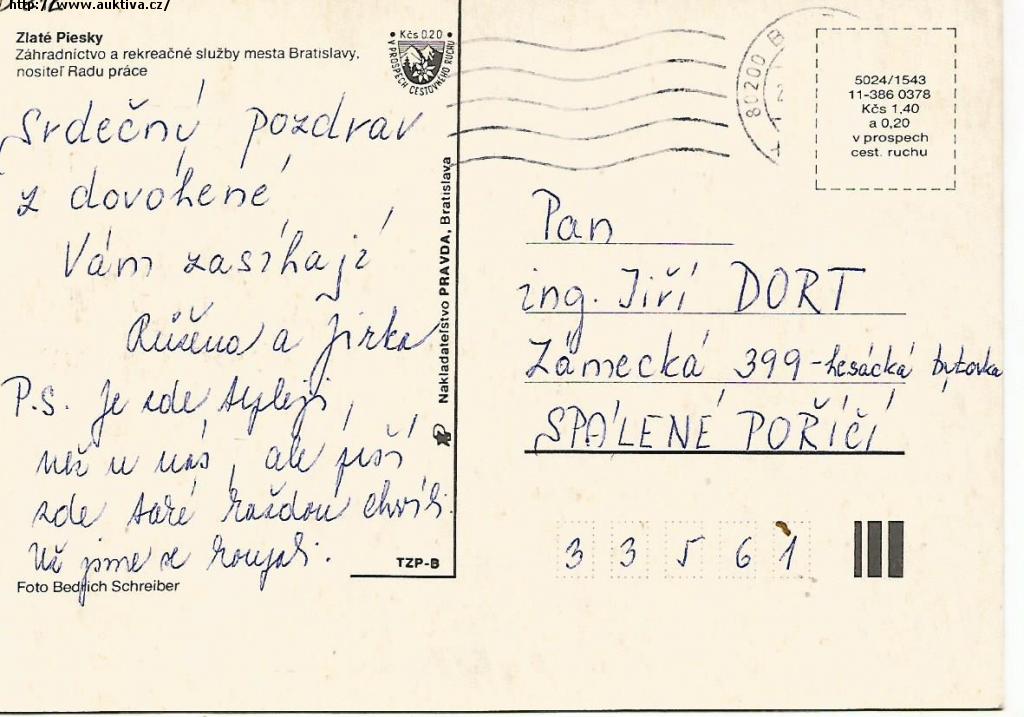 http://www.auktiva.cz/
Zlaté Piesky
Záhradníctvo a rekreačné služby mesta Bratislavy,
nositeľ Radu práce
Kčs 0.20
V PROSPECH CESTOVNÉHO RUCHU
Srdečný pozdrav
z dovolené
Vám zasílají
Růžena a Jirka
P.S. Je zde tepleji,
než u nás, ale prší
zde také každou chvíli.
Už jsme se koupali.
Foto Bedrich Schreiber
Nakladateľstvo PRAVDA, Bratislava
TZP-B
80200 B
5024/1543
11-386 0378
Kčs 1,40
a 0,20
v prospech
cest. ruchu
Pan
ing. Jiří DORT
Zámecká 399-lesácká bytovka
SPÁLENÉ POŘÍČÍ
33561